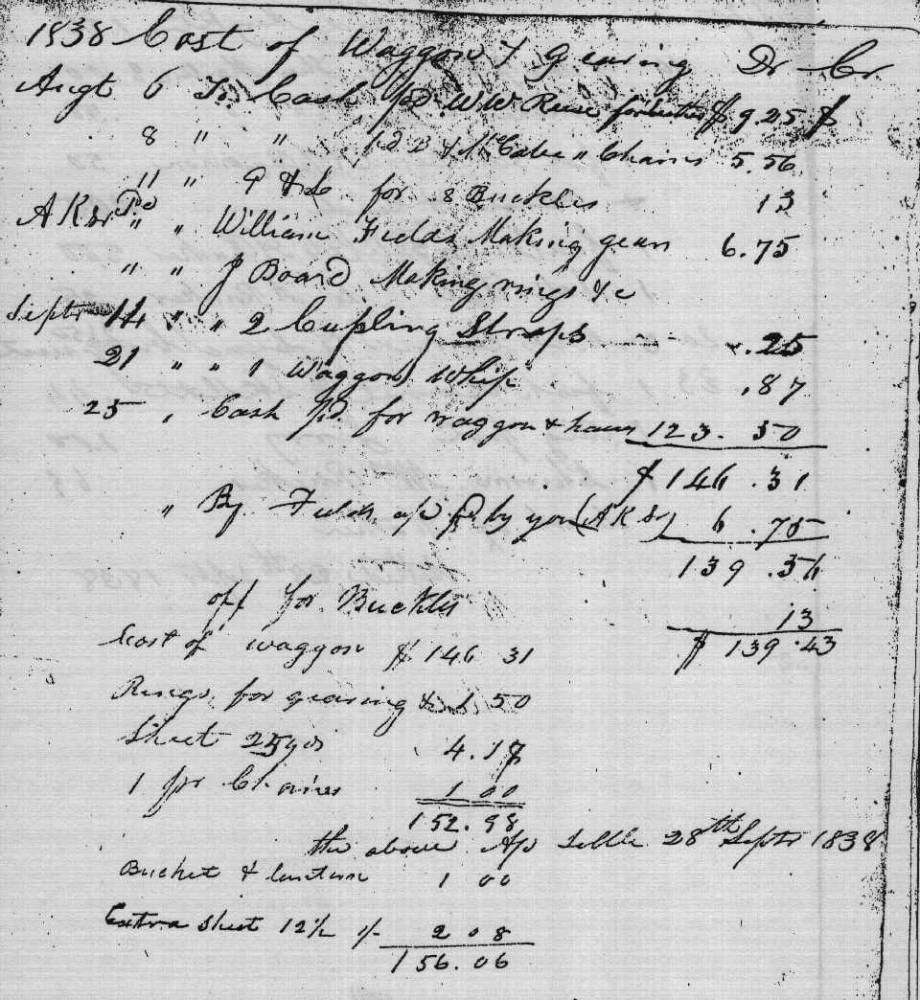 1838 Cost of Waggon & Gearing Dr Cr
Augt 6 To Cash pd W W Reese for $ 9.25 $
8 " " pd & McCabe " Chains 5.56
11 " for 8 Buckles 13
A K Sr Pd " " William Fields Making gear 6.75
" " J Board Making rings &c
Septr 14 " " 2 Cupling Straps .25
21 " " 1 Waggon Whip .87
25 " Cash pd. for waggon & haws 123.50
$ 146.31
" By Fields a/c pd by you (A K Sr) 6.75
139.56
off for Buckles 13
$ 139.43
Cost of waggon $ 146 31
Rings for gearing & 1 50
Sheet 25 yds 4.17
1 pr Chaines 1 00
152.98
the above A/c Settle 28th Septr 1838
Bucket & 1 00
Extra Sheet 12½ 1/- 2 08
156.06